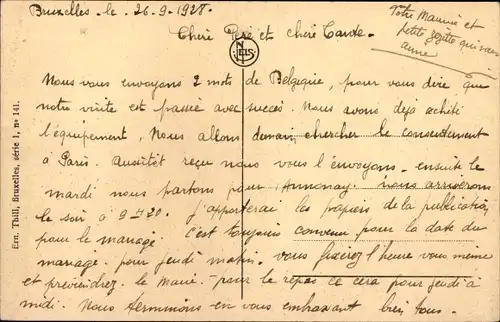 Bruxelles - le . 26-9-1928.
Chère Père et chère Tante -
Votre Maurice et
petite gogotte qui vous
aime
NELS
Nous vous envoyons 2 mots de Belgique, pour vous dire que
notre visite est passée avec succès. Nous avons déjà acheté
l'équipement, Nous allons demain chercher le consentement
à Paris. Aussitôt reçu nous vous l'envoyons - ensuite le
mardi nous partons pour Annonay. nous arriverons
le soir à 9 H 20. j'apporterai les papiers de la publication
pour le mariage c'est toujours convenu pour la date du
mariage. pour jeudi matin. vous fixerez l'heure vous même
et préviendrez le Maire - pour le repas ce cera pour jeudi à
midi. Nous terminons en vous embrassant bien tous.
Ern. Thill, Bruxelles, série 1, n° 141.